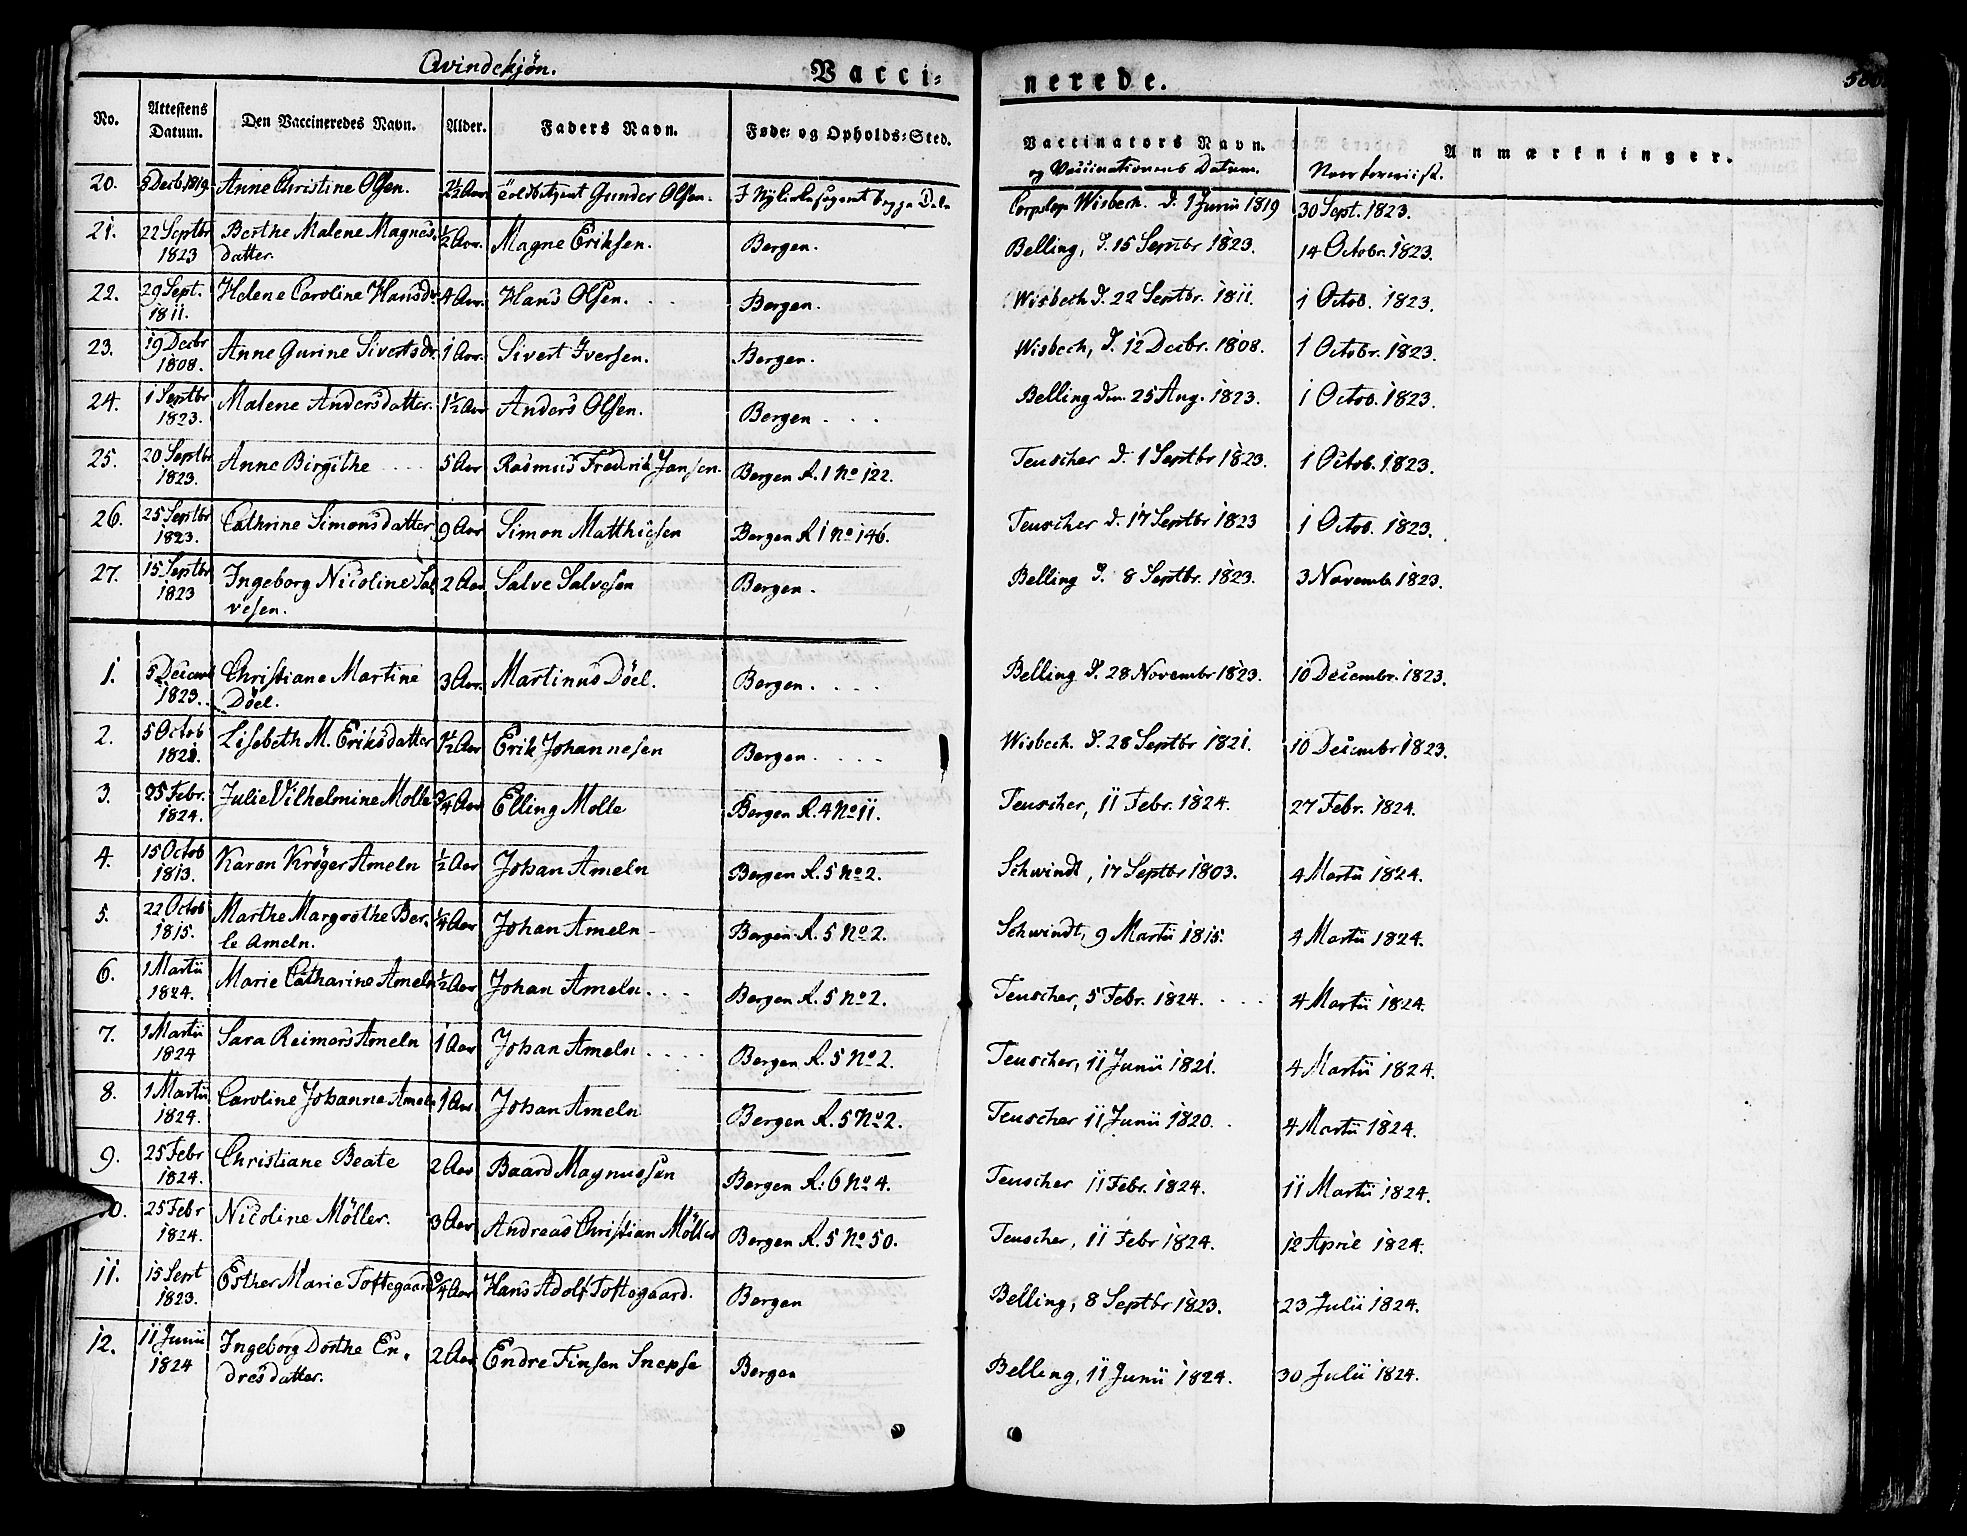 Qvindekjön.
Vacci=
nerede.
No. Attestens Datum. Den Vaccineredes Navn. Alder. Faders Navn. Føde= og Opholds=Sted. Vaccinators Navn. og Vaccinationens Datum. Anmærkninger.
20. 5 Decb. 1819. Anne Christine Olsen. 2½ Aar Gunder Olsen. Wisbech. d. 1 Junii 1819 30 Sept. 1823.
21. 22 Septbr 1823 Berthe Malene Magnes datter. ½ Aar. Magne Eriksen. Bergen. Belling, d. 15 Septbr 1823. 14 Octobr. 1823.
22. 29 Sept. 1811. Helene Caroline Hansdr. 4 Aar. Hans Olsen. . . Bergen. Wisbech d. 22 Septbr. 1811. 1 Octob. 1823.
23. 19 Decbr 1808. Anne Gurine Sivertsdr. 1 Aar. Sivert Iversen. Bergen. Wisbech, d. 12 Decbr. 1808. 1 Octobr. 1823.
24. 1 Septbr 1823. Malene Andersdatter. 1½ Aar Anders Olsen. Bergen . . . Belling den 25 Aug. 1823. 1 Octob. 1823.
25. 20 Septbr 1823. Anne Birgithe . . . 5 Aar Rasmus Fredrik Jansen. Bergen R. 1 No 122. Teuscher d. 1 Septbr 1823. 1 Octob. 1823.
26. 25 Septbr 1823. Cathrine Simonsdatter 9 Aar Simon Matthiesen Bergen R 1 No 146. Teuscher d. 17 Septbr 1823 1 Octob. 1823.
27. 15 Septbr 1823 Ingeborg Nicoline Sal vesen. 2 Aar Salve Salvesen Bergen. Belling d. 8 Septbr. 1823. 3 Novemb. 1823.
1. 5 Decemb 1823. Christiane Martine Döel. 3 Aar. Martinus Döel. Bergen. . . . Belling d. 28 Novembr 1823. 10 Decembr. 1823.
2. 5 Octob 1821. Lisebeth M. Eriksdatter 1½ Aar Erik Johannesen Bergen. . . . Wisbech. d. 28 Septbr 1821. 10 Decembr 1823.
3. 25 Febr. 1824. Julie Vilhelmine Molle ¾ Aar Elling Molle Bergen R. 4 No 11. Teuscher, 11 Febr. 1824. 27 Febr. 1824.
4. 15 Octob 1813. Karen Krøger Ameln ½ Aar Johan Ameln Bergen R. 5 No 2. Schwindt, 17 Septbr 1803. 4 Martii 1824.
5. 22 Octob 1815. Marthe Margrethe Ber. le Ameln. ¼ Aar Johan Ameln Bergen R. 5 No 2. Schwindt, 9 Martii 1815. 4 Martii 1824.
6. 1 Martii 1824. Marie Catharine Ameln ½ Aar Johan Ameln. . . Bergen R. 5 No 2. Teuscher, 5 Febr. 1824. . . . 4 Martii 1824.
7. 1 Martii 1824 Sara Reimers Ameln 1 Aar Johan Ameln . . . . Bergen R. 5 No 2. Teuscher, 11 Junii 1821. 4 Martii 1824.
8. 1 Martii 1824. Caroline Johanne Ameln 1 Aar. Johan Ameln Bergen R. 5 No 2. Teuscher 11 Junii 1820. 4 Martii 1824.
9. 25 Febr 1824. Christiane Beate 2 Aar Baard Magnussen Bergen R: 6 No 4. Teuscher 11 Febr. 1824. 11 Martii 1824.
10. 25 Febr 1824. Nicoline Möller. 3 Aar Andreas Christian Möller Bergen R. 5 No 50. Teuscher, 11 Febr 1824. 12 April 1824.
11. 15 Sept 1823. Esther Marie Toftegaard ¾ Aar Hans Adolf Toftegaard. Bergen Belling, 8 Septbr 1823. 23 Julii 1824.
12. 11 Junii 1824 Ingeborg Dorthe En. dresdatter. 2 Aar Endre Finsen Snepse Bergen Belling, 11 Junii 1824. 30 Julii 1824.